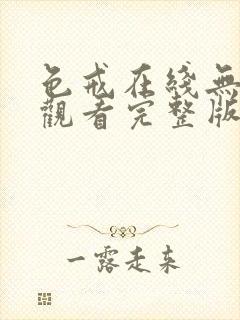 色戒在綫無
觀看完整版
一露走来